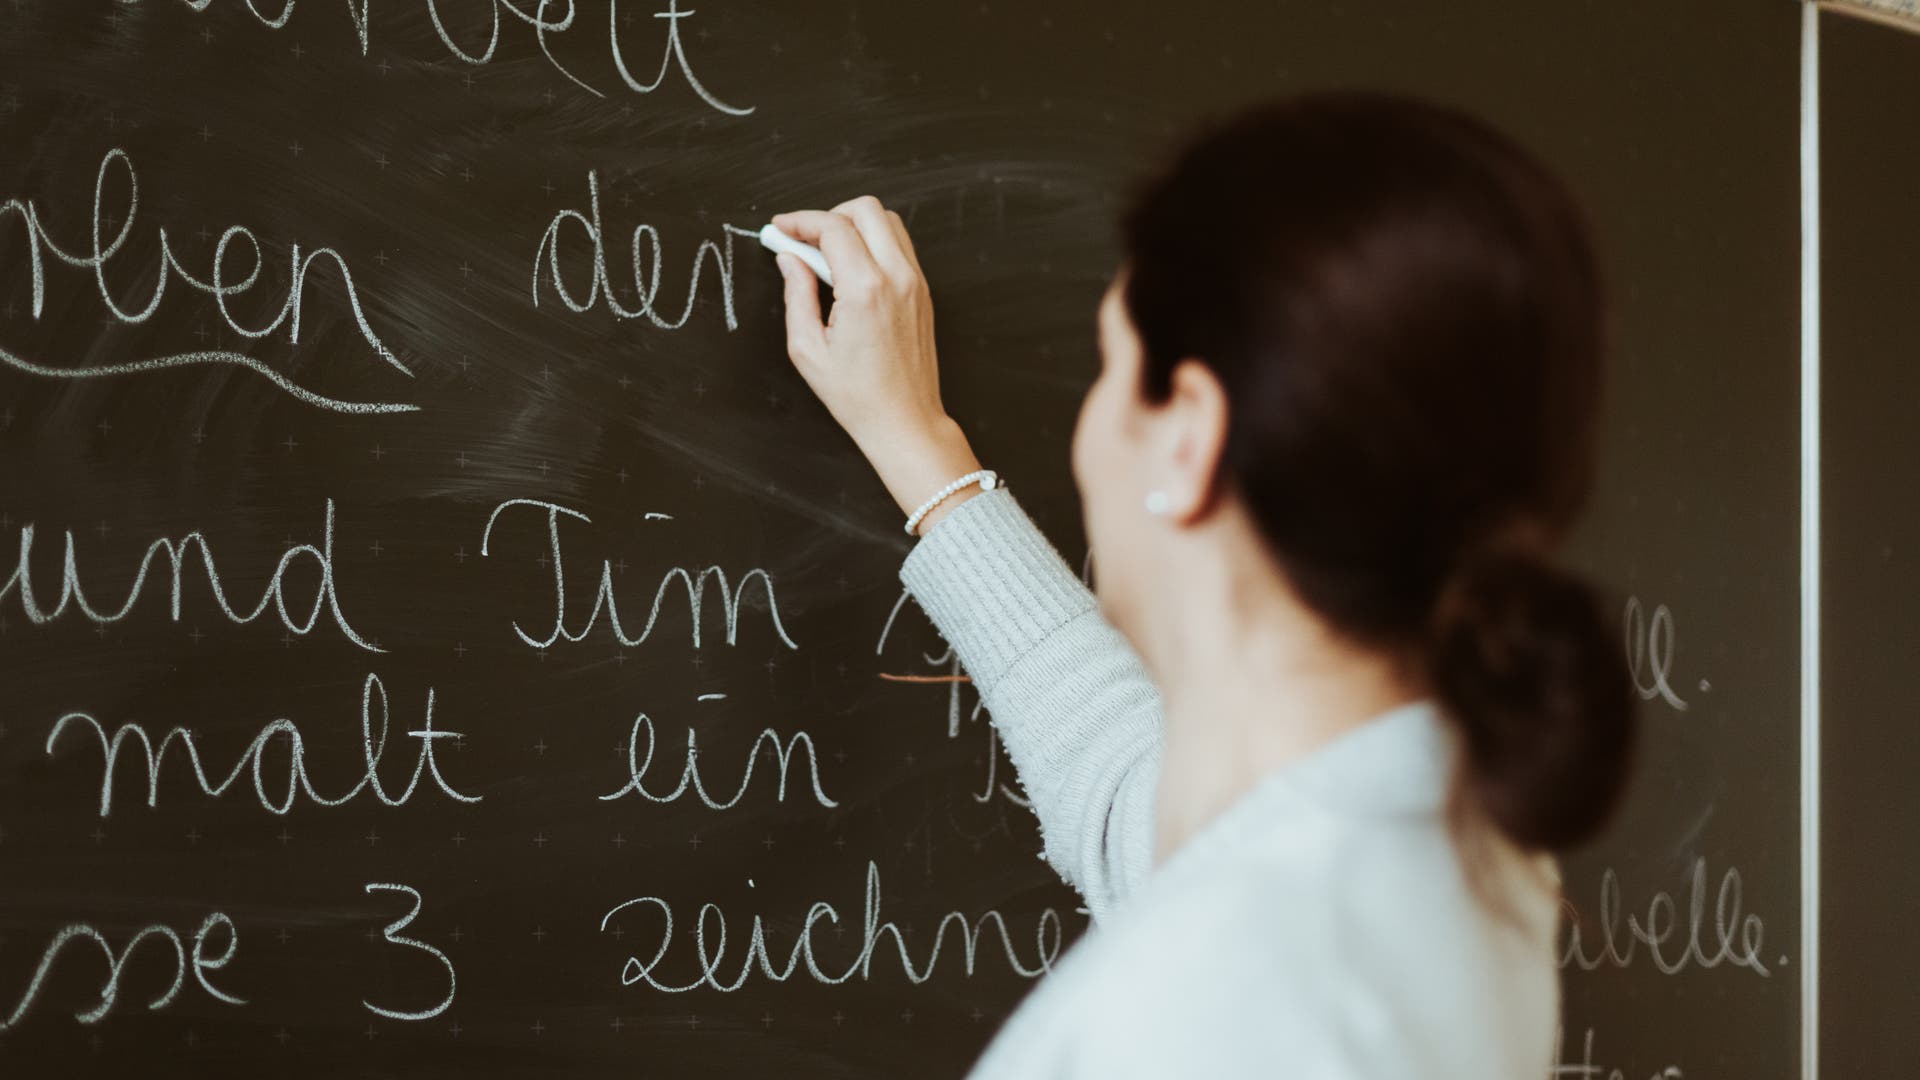 rben der
und Tim ll.
malt ein
sse 3 zeichne abelle.